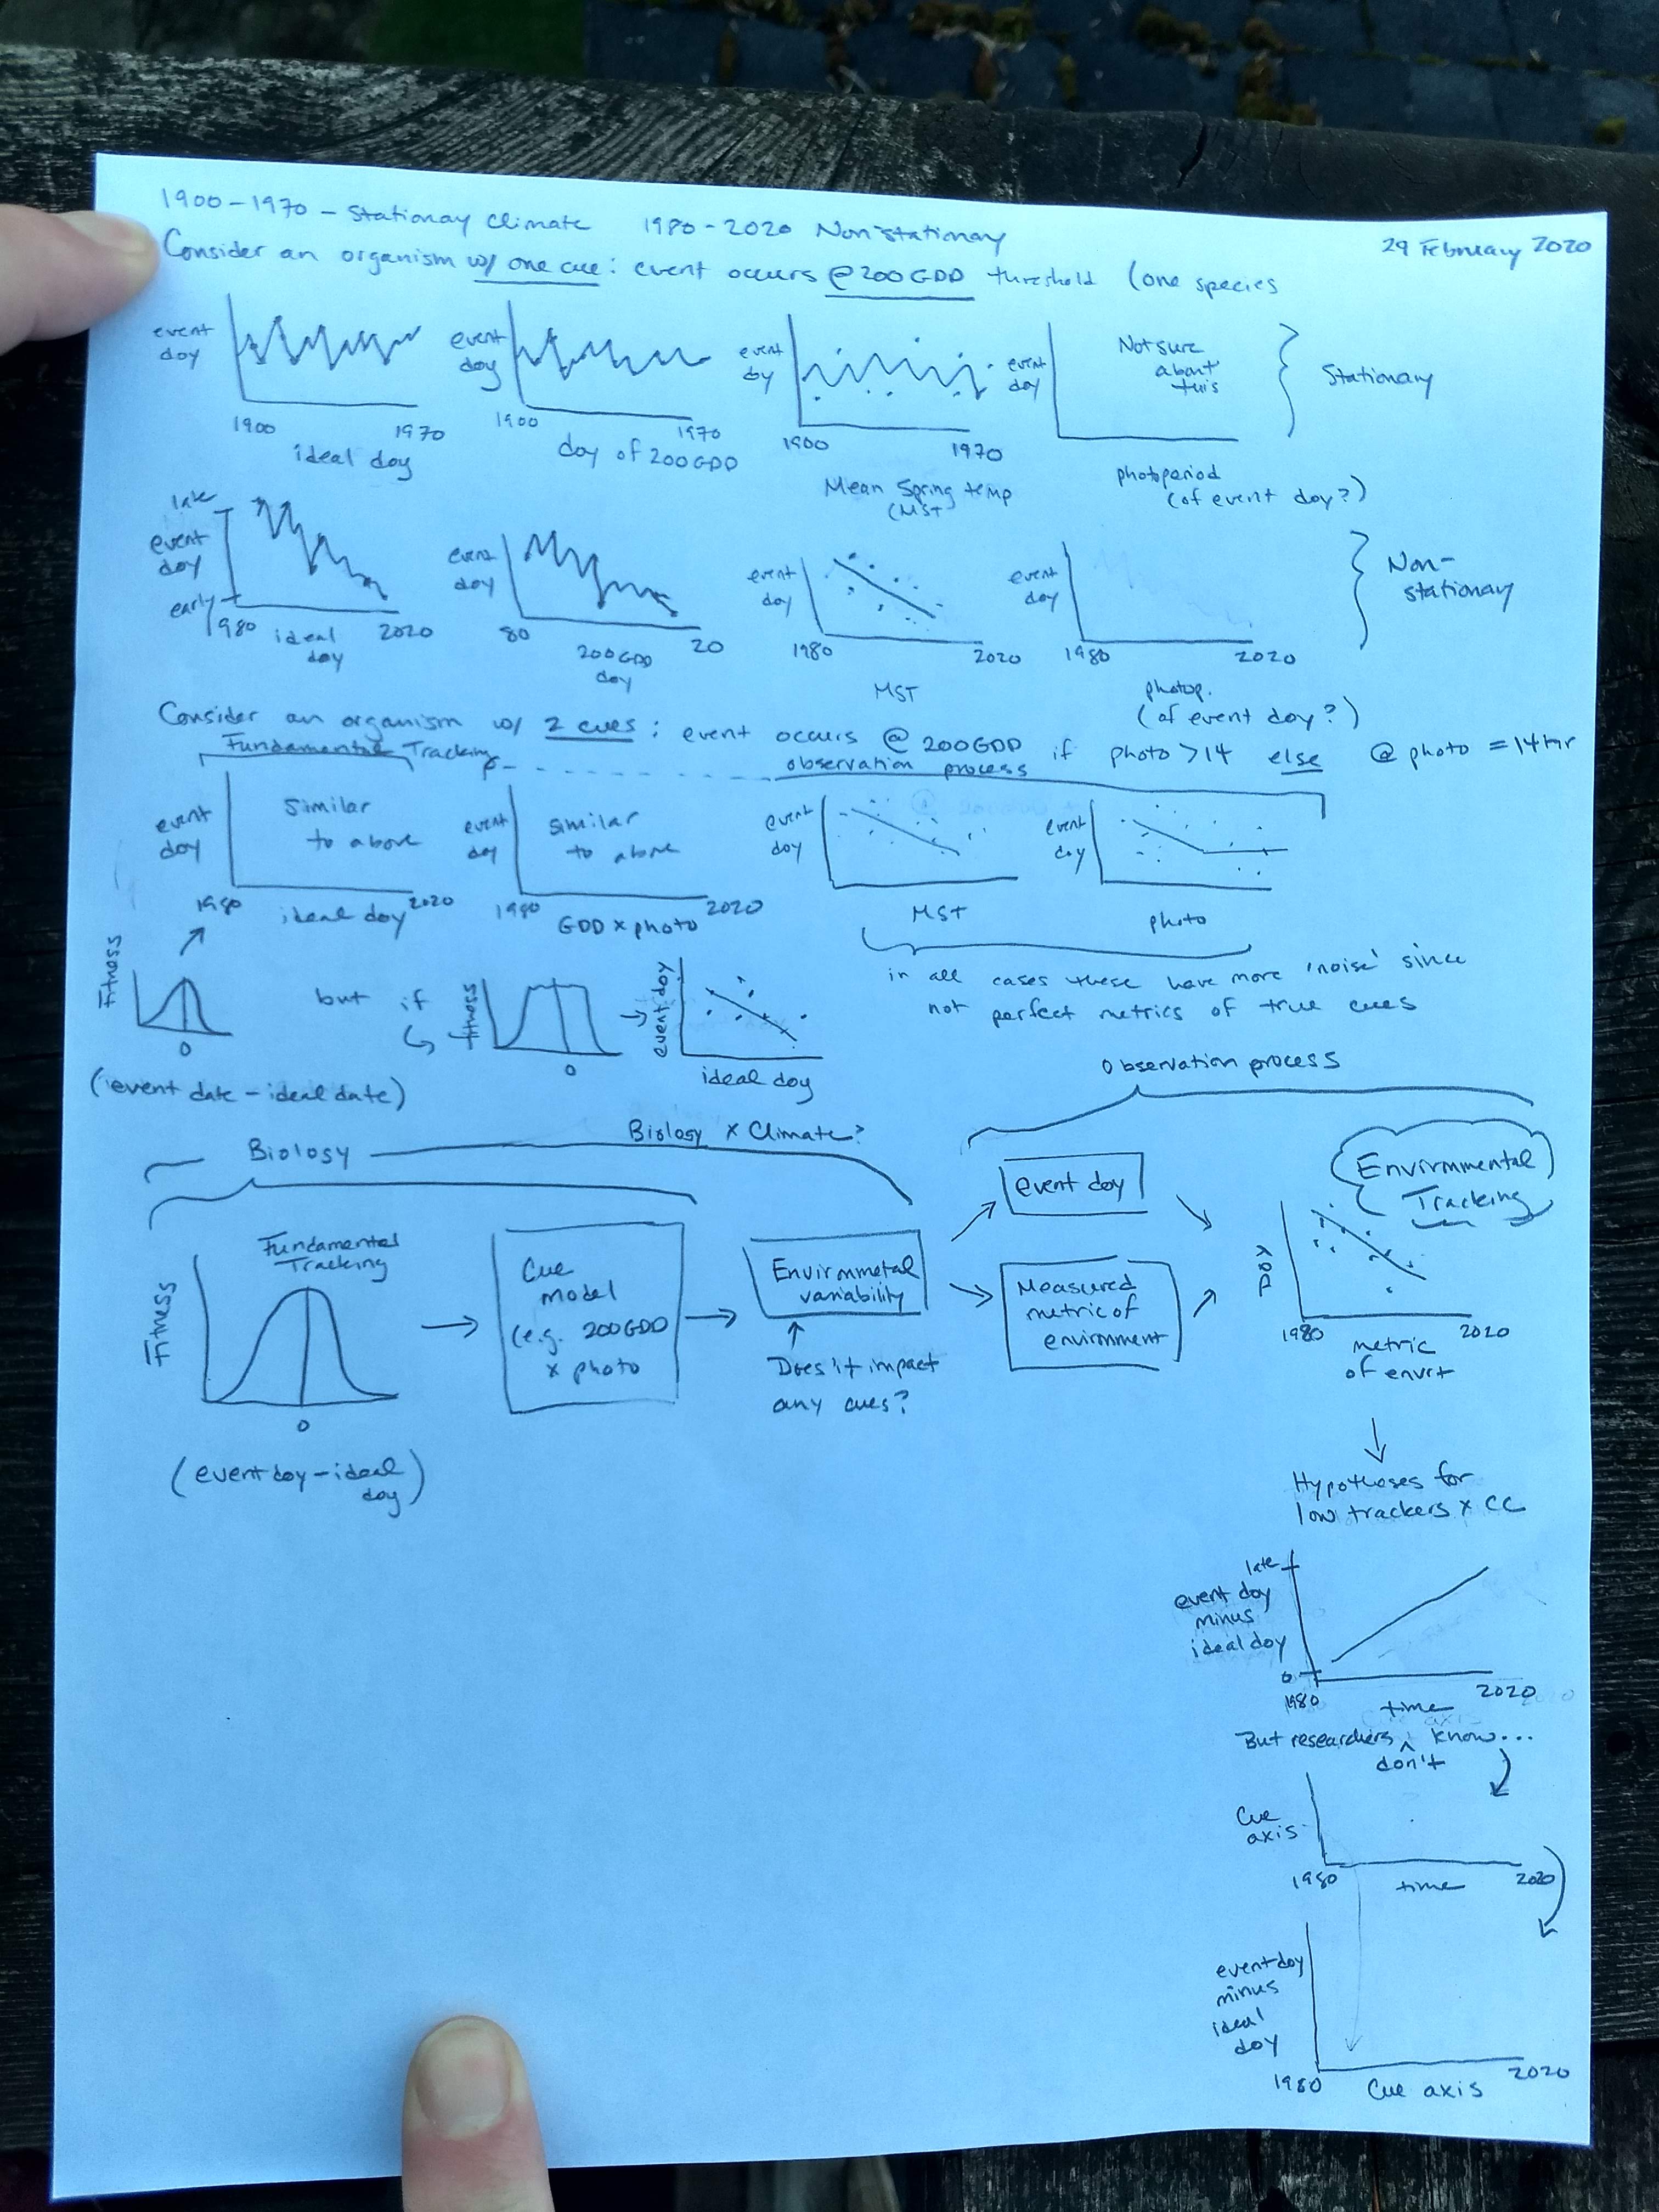 1900-1970 - Stationay Climate 1980-2020 Nonstationay
29 February 2020
Consider an organism w/ one cue: event occurs @ 200 GDD threshold (one species
event doy
1900 1970
ideal doy
event doy
1900 1970
doy of 200 GDD
event doy
1900 1970
Mean Spring temp
(MST
event doy
Not sure
about
this
photoperiod
(of event doy?)
Stationary
late
event
doy
early
1980 2020
ideal
doy
event
doy
80 20
200 GDD
doy
event
doy
1980 2020
MST
event
doy
1980 2020
photop.
(of event doy?)
Non-
stationary
Consider an organism w/ 2 cues: event occurs @ 200 GDD if photo >14 else @ photo = 14 hr
Fundamental Tracking
observation process
event
doy
Similar
to above
1980 2020
ideal doy
event
doy
similar
to above
1980 2020
GDD x photo
event
doy
MST
event
doy
photo
in all cases these have more 'noise' since
not perfect metrics of true cues
Fitness
0
(event date - ideal date)
but if
fitness
0
event doy
ideal doy
Observation process
Biology
Biology x Climate?
Fundamental
Tracking
Fitness
0
(event doy - ideal
doy)
Cue
model
(e.g. 200 GDD
x photo
Environmetal
variability
Does it impact
any cues?
event doy
Measured
metric of
environment
Envirnmental
Tracking
DOY
1980 2020
metric
of envrt
Hypotheses for
low trackers x CC
late
event doy
minus
ideal doy
0
1980 2020
time
But researchers know...
don't
Cue
axis
1980 2020
time
event doy
minus
ideal
doy
1980 2020
Cue axis